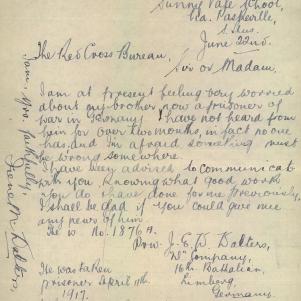 Sunny Vale School,
via Paskeville,
June 22nd.
The Red Cross Bureau,
Sir or Madam.
I am at present feeling very worried
about my brother now a prisoner of
war in Germany I have not heard from
him for over two months, in fact no one
has, and I'm afraid something must
be wrong somewhere.
I have been advised to communicate
with you. Knowing what good work
you do & have done for me previously,
I shall be glad if you could give me
any news of him.
No. 1876 A.
Pow. J. E. W. Dalters,
Company,
16th Battalion,
Limberg,
Germany
He was taken
prisoner April 11th
1917.
I am, Yrs. faithfully,
Irene M. Dalters.